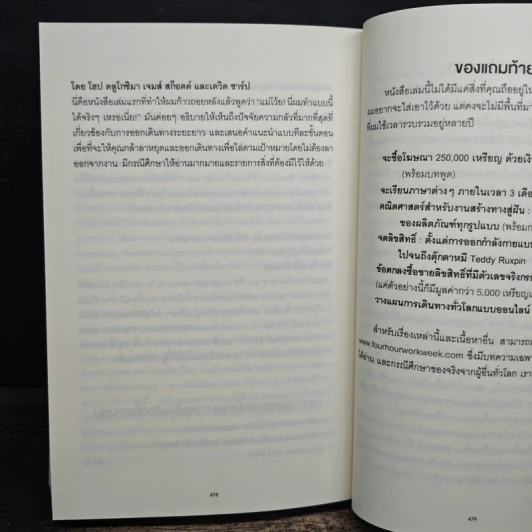 โดย โฮป ดลูโกซิมา เจมส์ สก็อตต์ และเดวิด ชาร์ป
นี่คือหนังสือเล่มแรกที่ทำให้ผมก้าวถอยหลังแล้วพูดว่า "แม่โว้ย! นี่ผมทำแบบนี้
ได้จริงๆ เหรอเนี่ย!" มันค่อยๆ อธิบายให้เห็นถึงปัจจัยความกลัวที่มากที่สุดที่
เกี่ยวข้องกับการออกเดินทางระยะยาว และเสนอคำแนะนำแบบทีละขั้นตอน
เพื่อที่จะให้คุณกล้าลาหยุดและออกเดินทางเพื่อไล่ตามเป้าหมายโดยไม่ต้องลา
ออกจากงาน มีกรณีศึกษาให้อ่านมากมายและรายการสิ่งที่ต้องมีไว้ให้ด้วย
478
ของแถมท้าย
หนังสือเล่มนี้ไม่ได้มีแค่สิ่งที่คุณถืออยู่ใน
ผมอยากจะใส่เอาไว้ด้วย แต่คงจะไม่มีพื้นที่มา
ที่ผมใช้เวลารวบรวมอยู่หลายปี
จะซื้อโฆษณา 250,000 เหรียญ ด้วยเงิ
(พร้อมบทพูด)
จะเรียนภาษาต่างๆ ภายในเวลา 3 เดือ
คณิตศาสตร์สำหรับงานสร้างทางสู่ฝัน :
ของผลิตภัณฑ์ทุกรูปแบบ (พร้อมก
จดลิขสิทธิ์ : ตั้งแต่การออกกำลังกายแบบ
ไปจนถึงตุ๊กตาหมี Teddy Ruxpin
ข้อตกลงซื้อขายลิขสิทธิ์ที่มีตัวเลขจริงกร
(แค่ตัวอย่างนี้ก็มีมูลค่ากว่า 5,000 เหรียญแ
วางแผนการเดินทางทั่วโลกแบบออนไลน์
สำหรับเรื่องเหล่านี้และเนื้อหาอื่น สามารถ
www.fourhourworkweek.com ซึ่งมีบทความเฉพ
ได้อ่าน และกรณีศึกษาของจริงจากผู้อื่นทั่วโลก เรา
479